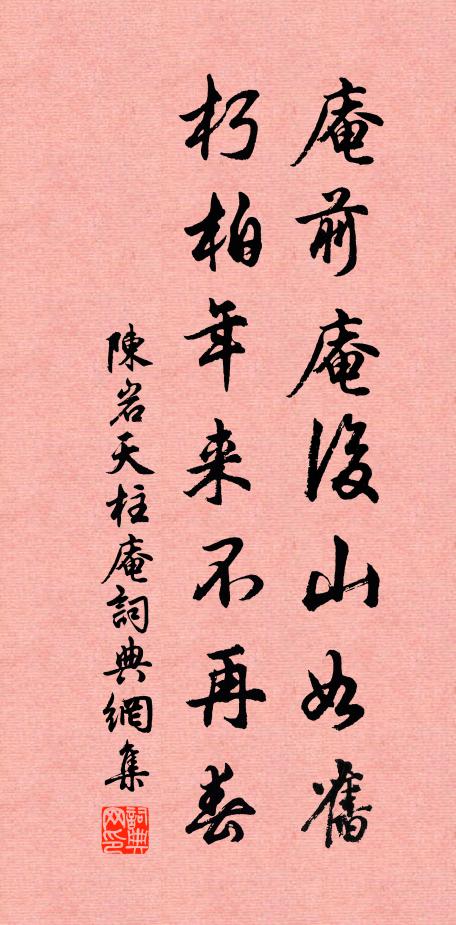 庵前庵後山如舊
朽柏年来不再春
陳岩天柱庵詞典網集
詞典网印